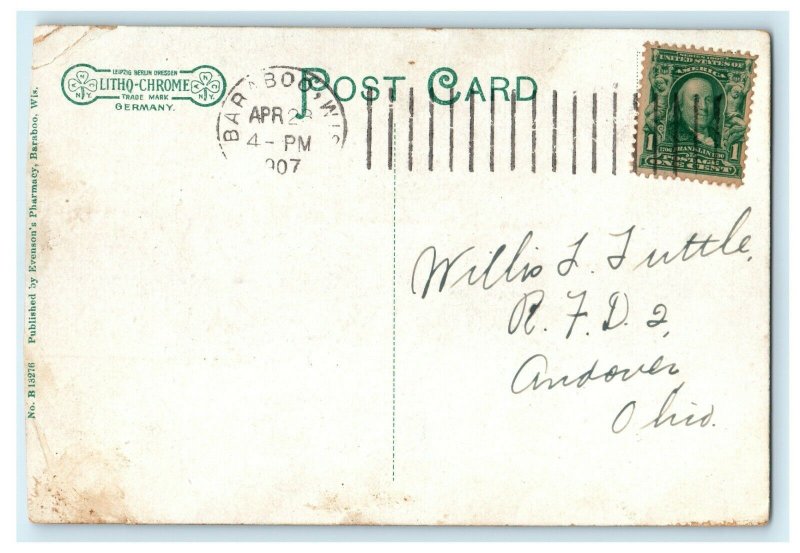 LEIPZIG BERLIN DRESDEN
LITHO-CHROME
TRADE MARK
GERMANY.
N
N
Y.
N
N
Y.
POST CARD
BARABOO, WIS
APR 28
4-PM
907
UNITED STATES OF
AMERICA
1 FRANKLIN 1
POSTAGE
ONE CENT
No. B 13276 Published by Evenson's Pharmacy, Baraboo, Wis.
Willis L. Tuttle,
R. F. D. 2,
Andover
Ohio.